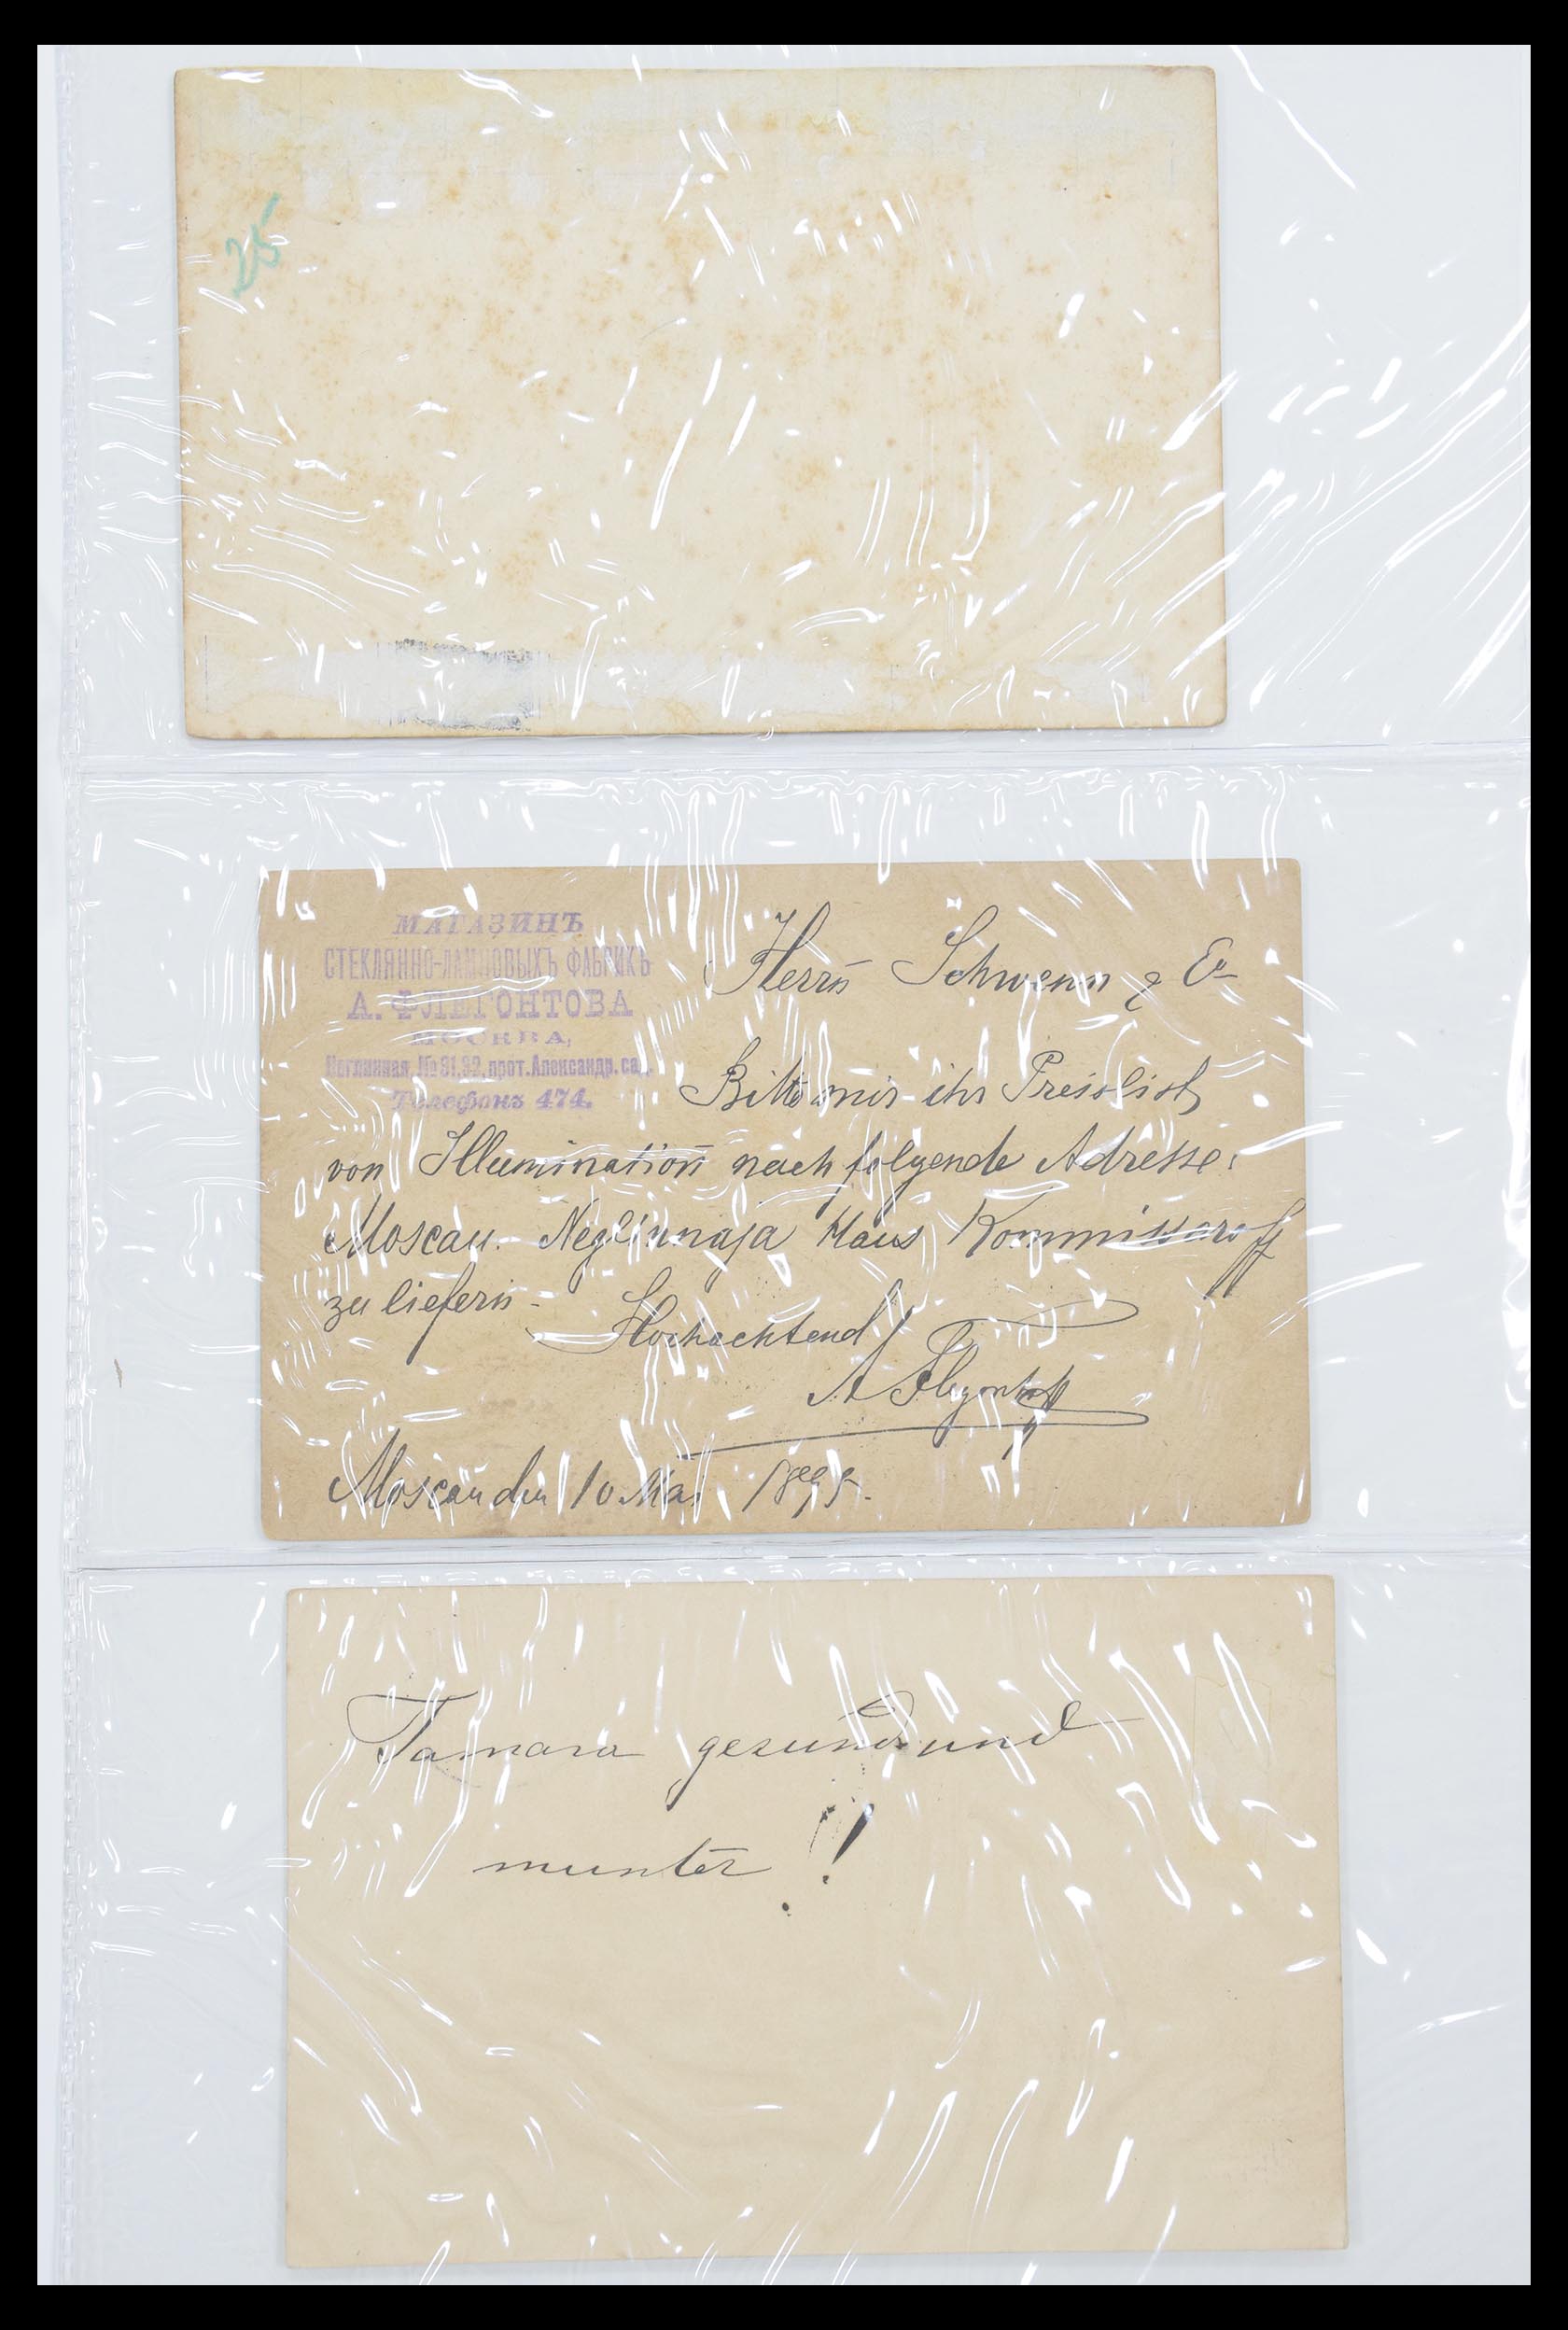 25
МАГАЗИНЪ
СТЕКЛЯННО-ЛАМПОВЫХЪ ФАБРИКЪ
А. ФЛЕГОНТОВА
МОСКВА,
Неглинная, № 31,32, прот. Александр. са
Телефонъ 474.
Herrn Schwenn & Co
Bitte mir ihr Preislist
von Illumination nach folgende Adresse:
Moscau. Neglinnaja Haus Kommissaroff
zu liefern -
Hochachtend
A Flegontoff
Moscau den 10 Mai 1895.
Tamara gesund und
munter!!